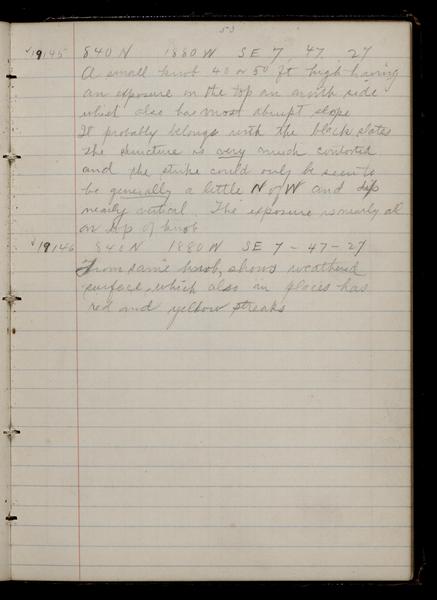 53
19145 840 N 1880 W SE 7 47 27
A small knob 40 or 50 ft high having
an exposure on the top an north side
which also has most abrupt slope
It probably belongs with the black slates
The structure is very much contorted
and the strike could only be seen to
be generally a little N of W and dip
nearly vertical. The exposure is nearly all
on top of knob
19146 840 N 1880 W SE 7 - 47 - 27
From same knob, shows weathered
surface, which also in places has
red and yellow streaks